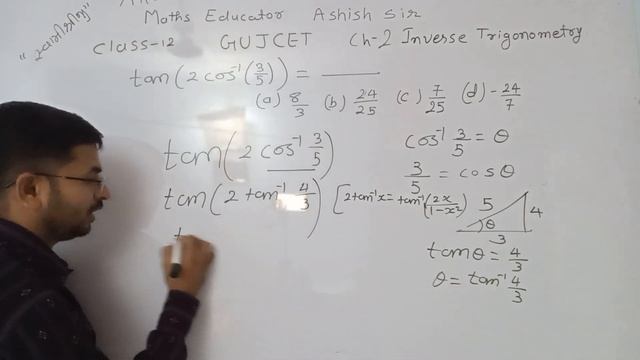 Maths Educator Ashish Sir
Class-12 GUJCET Ch-2 Inverse Trigonometry
tan(2 cos⁻¹(3/5)) = ______
(a) 8/3 (b) 24/25 (c) 7/25 (d) -24/7
tan(2 cos⁻¹ 3/5)
cos⁻¹ 3/5 = θ
3/5 = cosθ
tan(2 tan⁻¹ 4/3) [2tan⁻¹x = tan⁻¹(2x/1-x²)
5
4
θ
3
t
tanθ = 4/3
θ = tan⁻¹ 4/3